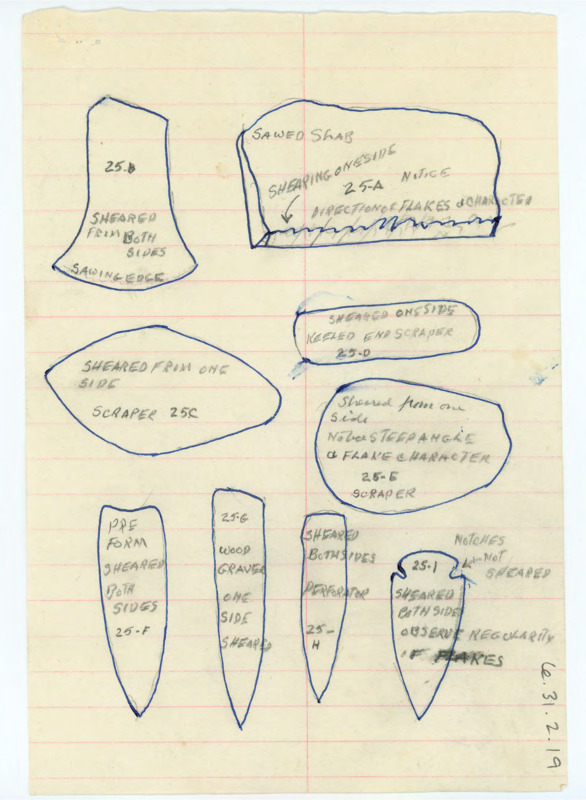 25-B
SHEARED
FROM BOTH
SIDES
SAWING EDGE
SAWED SLAB
SHEARING ONE SIDE
25-A
NOTICE
DIRECTION OF FLAKES & CHARACTER
SHEARED ONE SIDE
KEELED END SCRAPER
25-D
SHEARED FROM ONE
SIDE
SCRAPER 25C
Sheared from one
side
Notice STEEP ANGLE
& FLAKE CHARACTER
25-E
SCRAPER
PRE
FORM
SHEARED
BOTH
SIDES
25-F
25-G
WOOD
GRAVER
ONE
SIDE
SHEARED
SHEARED
BOTH SIDES
PERFORATOR
25-
H
NOTCHES
NOT
SHEARED
25-I
SHEARED
BOTH SIDES
OBSERVE REGULARITY
OF FLAKES
6.31.2.19